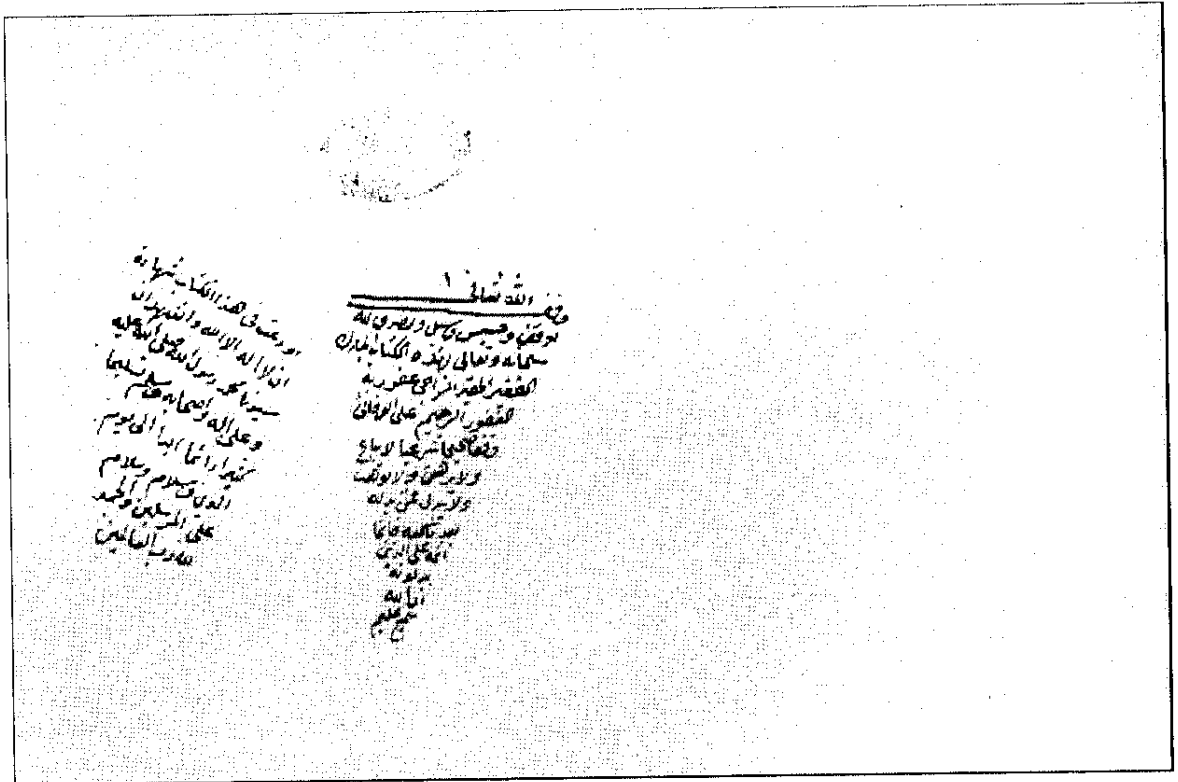 وقف الله تعالى
اوقف وحبس وسبل وتصدق لله
سبحانه وتعالى بهذه الكتاب المبارك
الفقير الحقير الراجي عفو ربه
الغفور الرحيم علي
وقفا صحيحا شرعيا لا يباع
ولا يرهن ولا يوهب
ولا يبدل فمن بدله
بعد ما سمعه فانما
اثمه على الذين
يبدلونه
ان الله
سميع عليم
اودعت في هذا الكتاب شهادة
ان لا اله الا الله واشهد ان
سيدنا محمد رسول الله صلى الله عليه
وعلى اله واصحابه وسلم تسليما
كثيرا دائما ابدا الى يوم
الدين وسلام
على المرسلين والحمد
لله رب العالمين